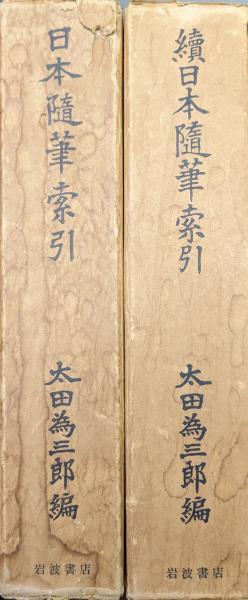 日本隨筆索引
太田為三郎編
岩波書店
續日本隨筆索引
太田為三郎編
岩波書店